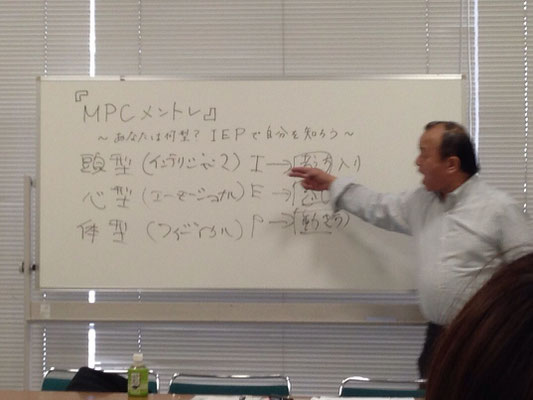 『MPCメントレ』
～あなたは何型？ IEPで自分を知ろう～
頭型 (インテリジェンス) I →
心型 (エモーショナル) E →
体型 (フィジカル) P → 動き